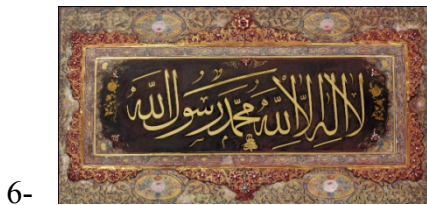 لا اله الا الله محمد رسول الله
6-